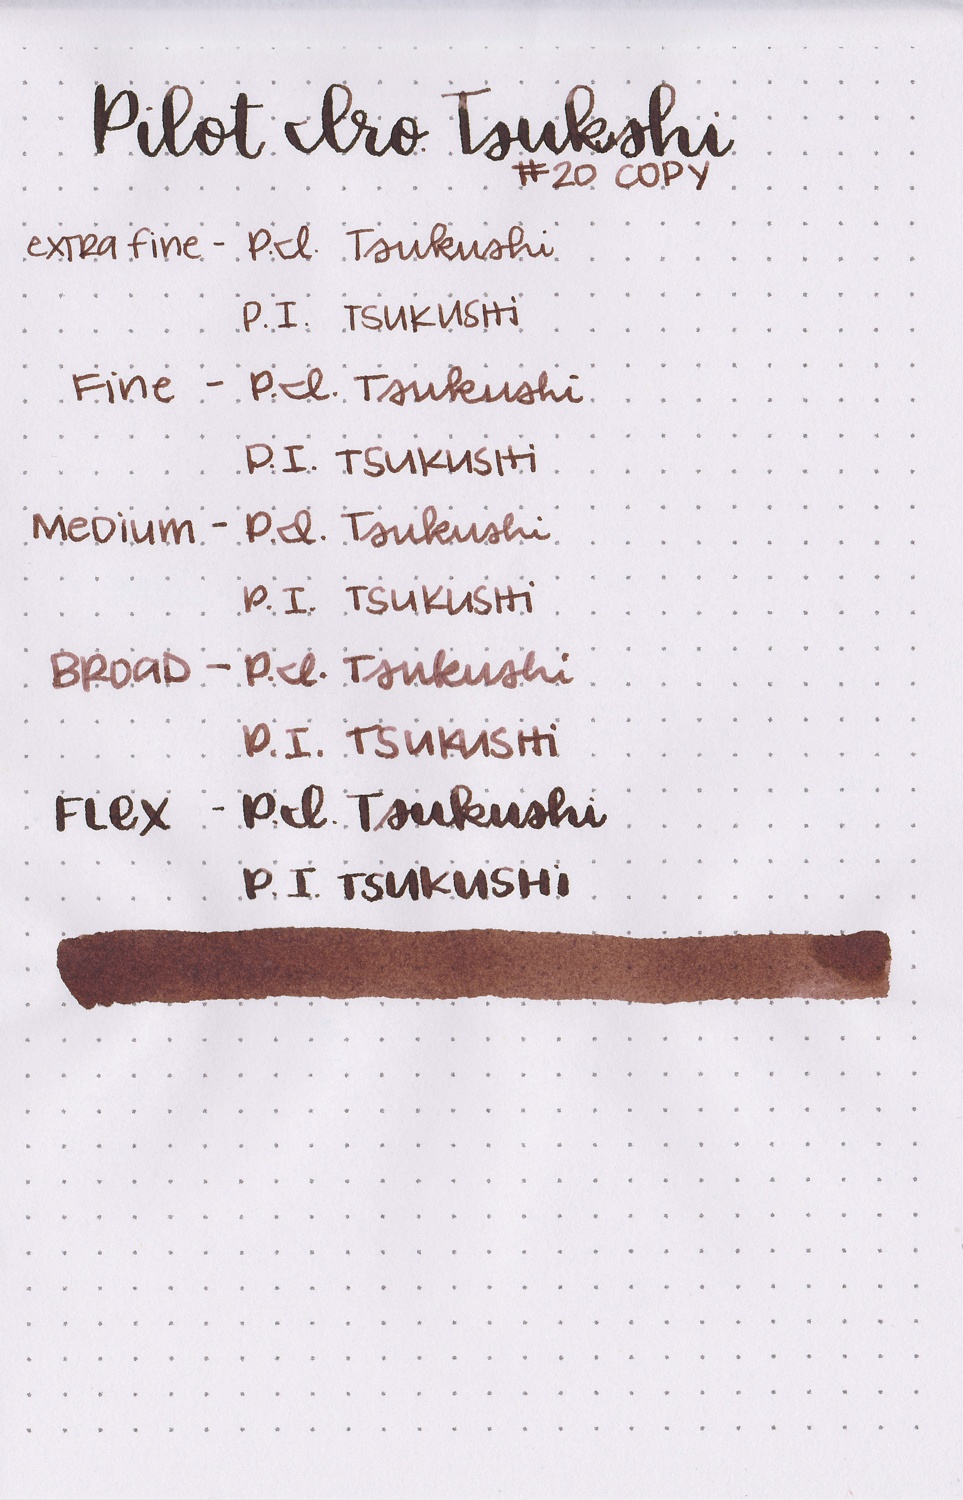 Pilot Iro Tsukshi
#20 COPY
extra fine - P.I. Tsukushi
P.I. TSUKUSHi
Fine - P.I. Tsukushi
P.I. TSUKUSHi
Medium - P.I. Tsukushi
P.I. TSUKUSHi
BROAD - P.I. Tsukushi
P.I. TSUKUSHi
FLex - P.I. Tsukushi
P.I TSUKUSHi